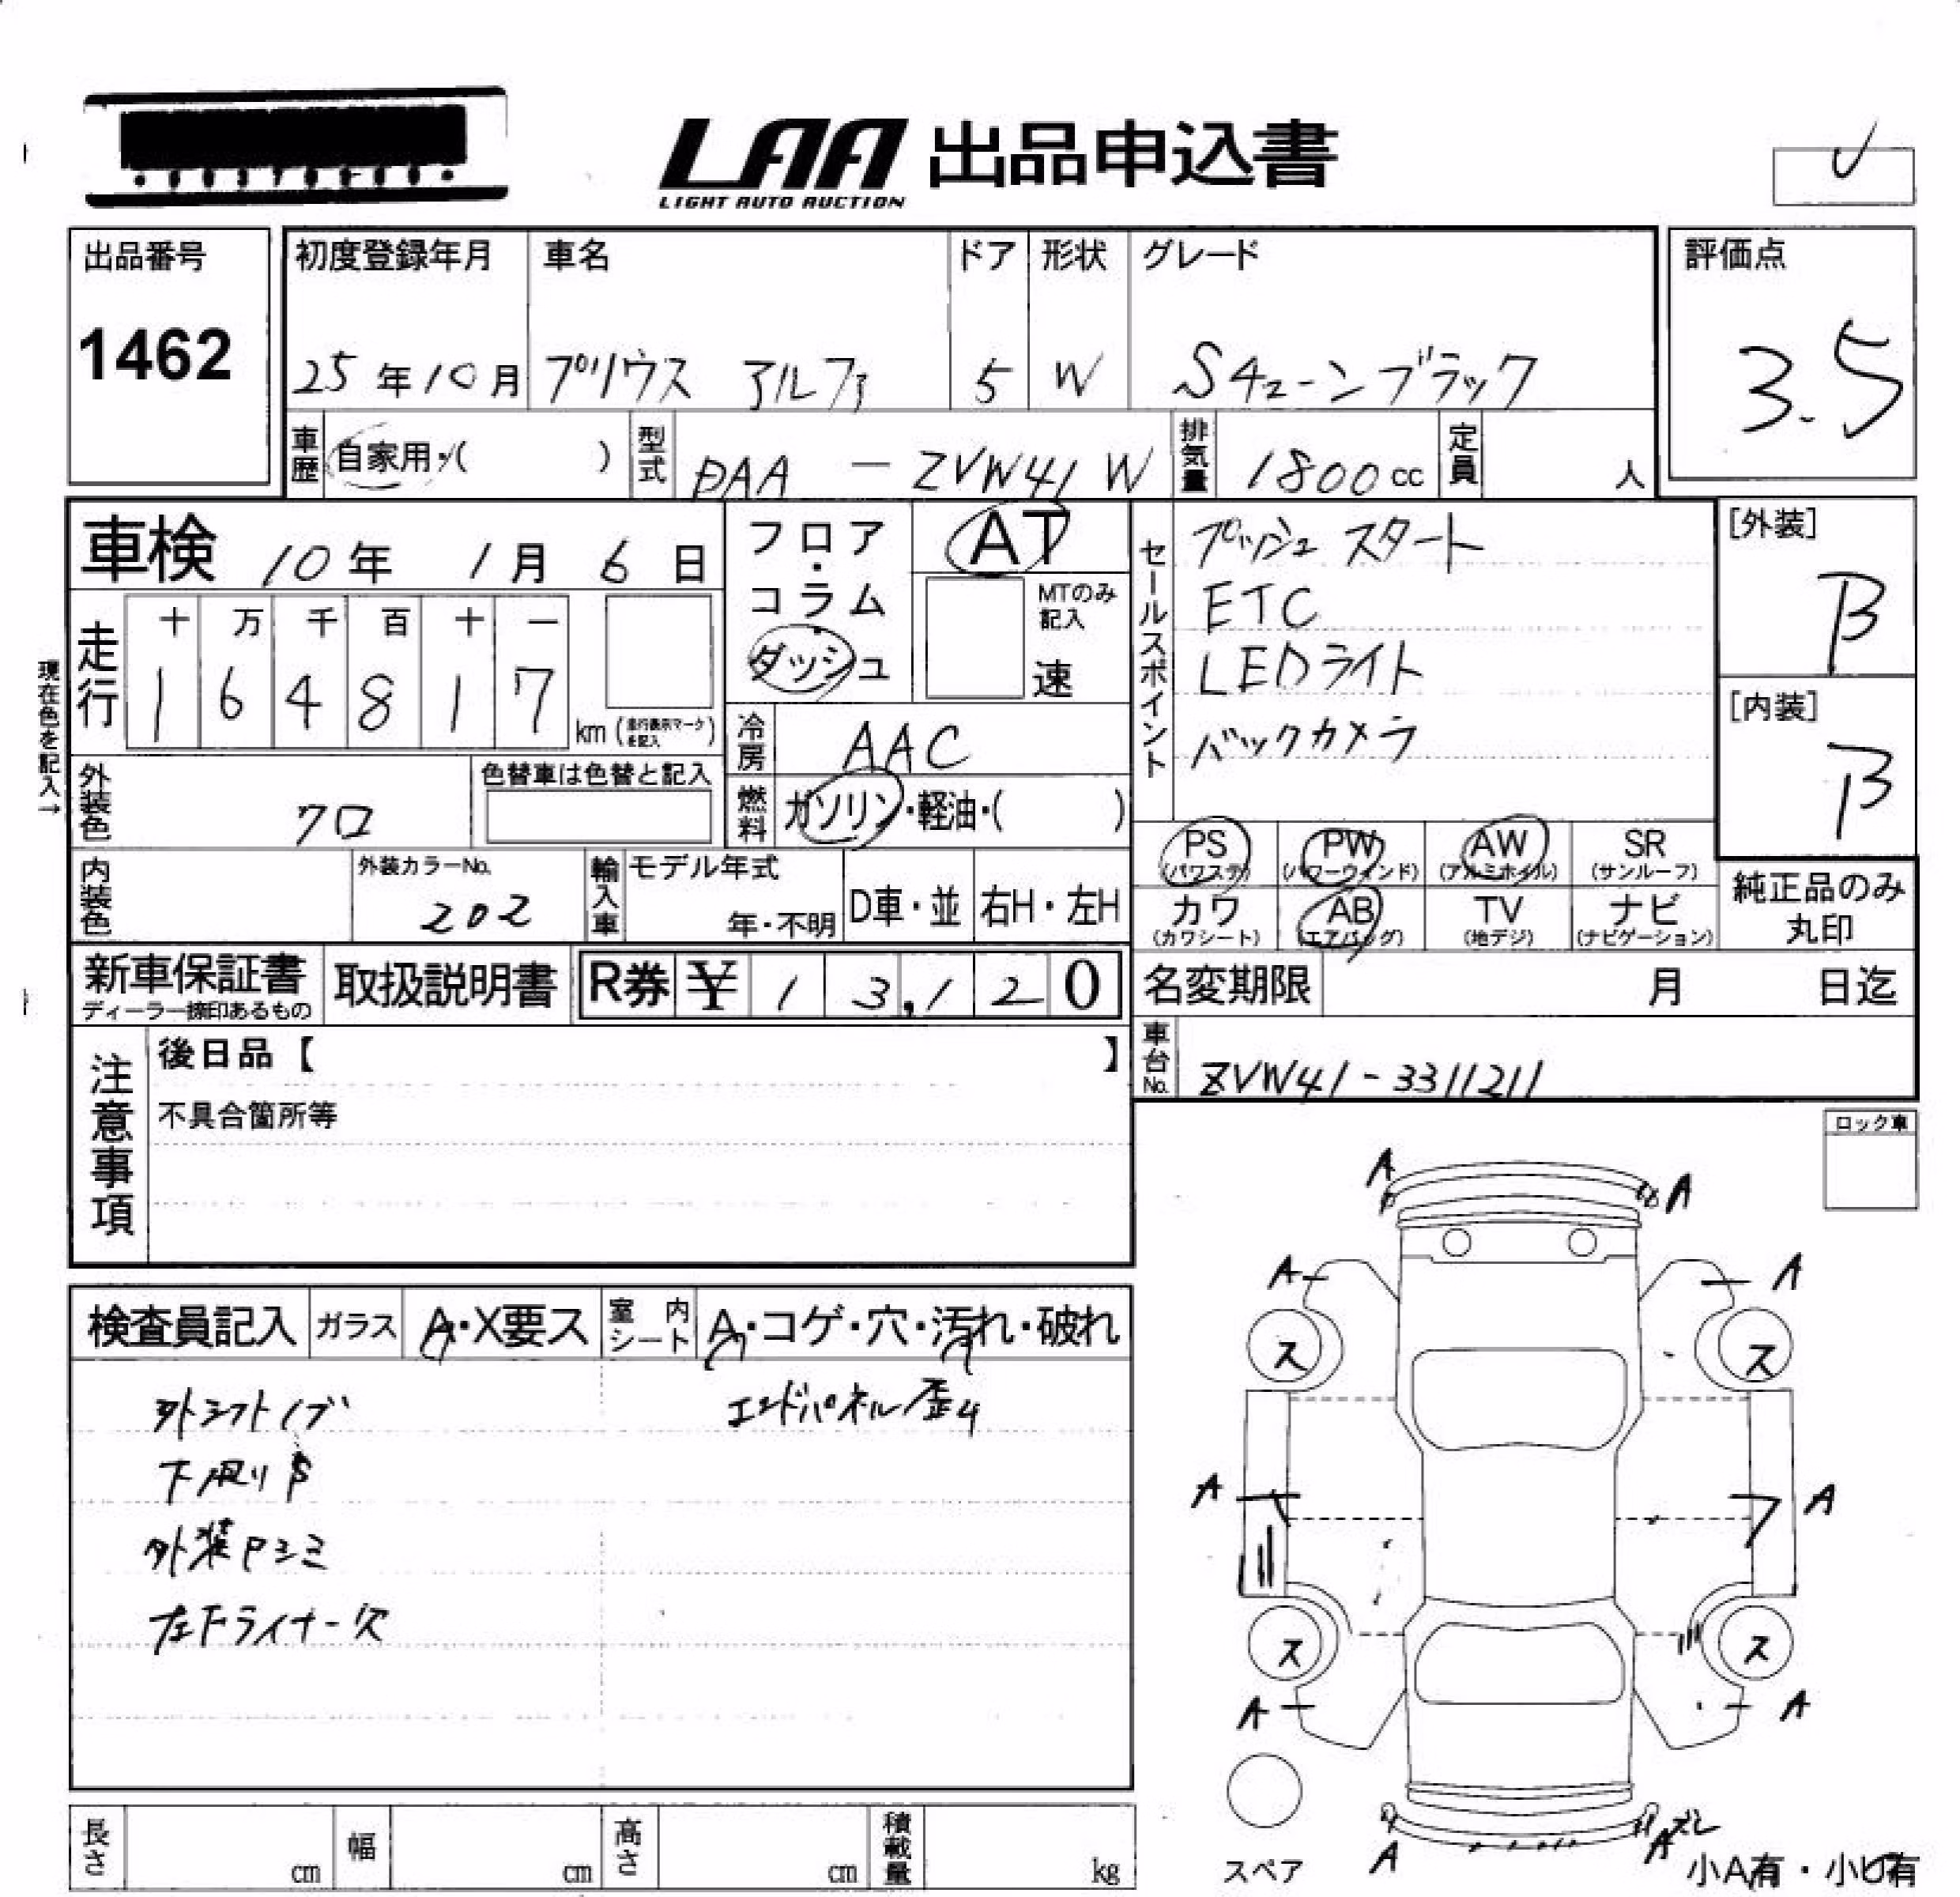 LAA 出品申込書
LIGHT AUTO AUCTION
出品番号 初度登録年月 車名 ドア 形状 グレード 評価点
1462 25年10月 プリウス アルファ 5 W Sチューンブラック 3.5
車歴 自家用・( ) 型式 DAA - ZVW41W 排気量 1800cc 定員 人
車検 10年 1月 6日
フロア・コラム ダッシュ
AT
MTのみ記入
速
セールスポイント
プッシュスタート
ETC
LEDライト
バックカメラ
[外装]
B
[内装]
B
現在色を記入→
走行 十 万 千 百 十 一
1 6 4 8 1 7 km (走行表示マークを記入)
冷房 AAC
外装色 クロ 色替車は色替と記入
燃料 ガソリン・軽油・( )
PS (パワステ) PW (パワーウィンド) AW (アルミホイル) SR (サンルーフ)
カワ (カワシート) AB (エアバッグ) TV (地デジ) ナビ (ナビゲーション)
純正品のみ丸印
内装色 外装カラーNo. 202 輸入車 モデル年式 年・不明 D車・並 右H・左H
新車保証書 ディーラー捺印あるもの 取扱説明書 R券 ¥ 1 3,1 2 0
名変期限 月 日迄
車台No. ZVW41-3311211
注意事項
後日品【 】
不具合箇所等
ロック車
検査員記入 ガラス A・X要ス 室内シート A・コゲ・穴・汚れ・破れ
外シフトノブ エンドパネル歪み
下廻りS
外装Pシミ
左下ライナー欠
A A
A A
ス ス
A A
ス ス
A A
A A ズレ
スペア
小A有・小U有
長さ cm 幅 cm 高さ cm 積載量 kg